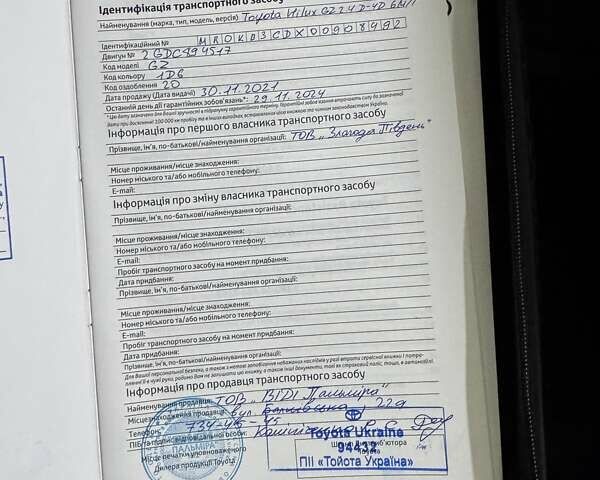 Ідентифікація транспортного засобу
Найменування (марка, тип, модель, версія) Toyota Hilux GZ 2.4 D-4D 6M/T
Ідентифікаційний №
Двигун № 2GDC894517
Код моделі GZ
Код кольору 1D6
Код оздоблення 20
Дата продажу (Дата видачі) 30.11.2021
Останній день дії гарантійних зобов'язань* 29.11.2024
Інформація про першого власника транспортного засобу
Прізвище, ім'я, по-батькові/найменування організації: ТОВ „Злагода Південь"
Місце проживання/місце знаходження:
Номер міського та/або мобільного телефону:
E-mail:
Інформація про зміну власника транспортного засобу
Прізвище, ім'я, по-батькові/найменування організації:
Місце проживання/місце знаходження:
Номер міського та/або мобільного телефону:
E-mail:
Пробіг транспортного засобу на момент придбання:
Дата придбання:
Прізвище, ім'я, по-батькові/найменування організації:
Місце проживання/місце знаходження:
Номер міського та/або мобільного телефону:
E-mail:
Пробіг транспортного засобу на момент придбання:
Дата придбання:
Прізвище, ім'я, по-батькові/найменування організації:
Інформація про продавця транспортного засобу
Найменування продавця: ТОВ „ВІДІ Пальміра"
Місцезнаходження продавця: вул. 22а
Телефон: 734-45-45
ПІБ та підпис відповідальної особи:
Місце печатки уповноваженого
Дилера продукції Toyota
ПАЛЬМІРА
Toyota Ukraine
94432
ПІІ «Тойота Україна»